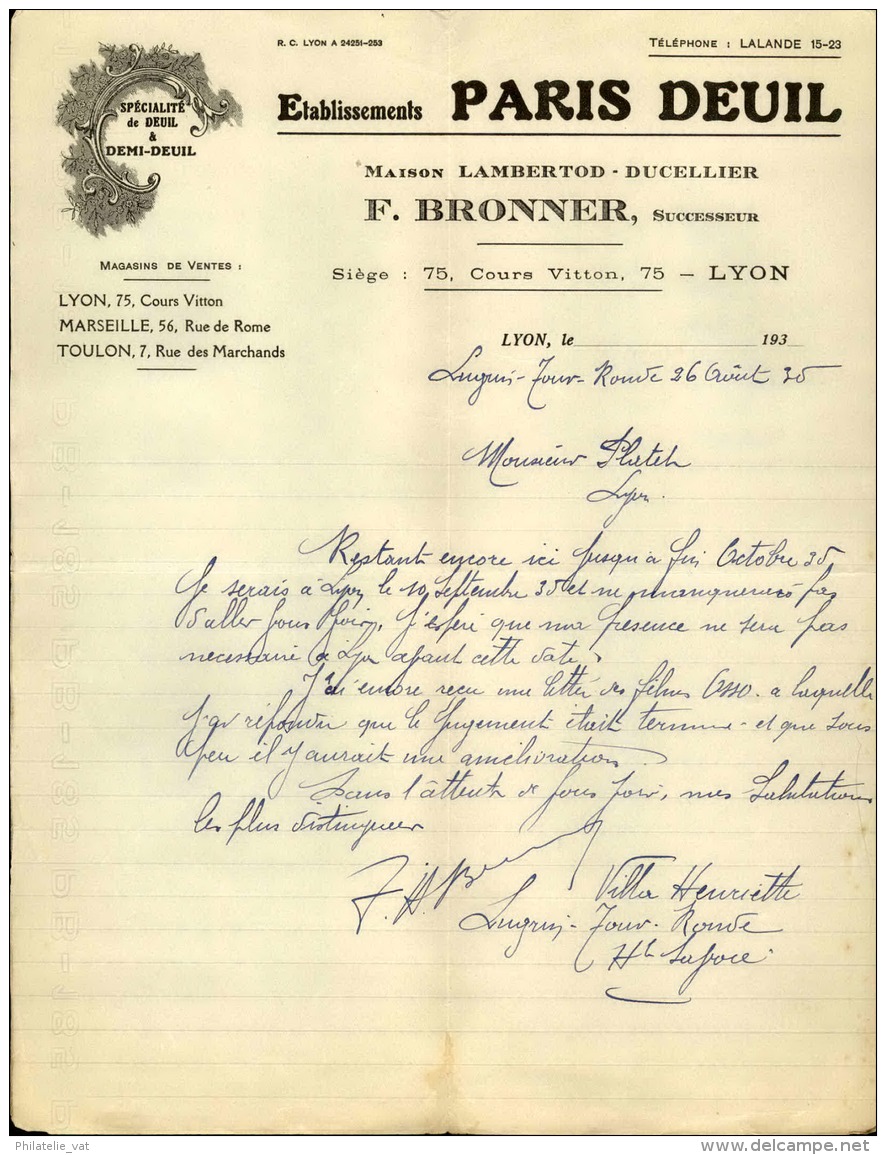 R. C. LYON A 24251-253
TÉLÉPHONE : LALANDE 15-23
SPÉCIALITÉ
de DEUIL
&
DEMI-DEUIL
Etablissements PARIS DEUIL
MAISON LAMBERTOD - DUCELLIER
F. BRONNER, SUCCESSEUR
Siège : 75, Cours Vitton, 75 – LYON
MAGASINS DE VENTES :
LYON, 75, Cours Vitton
MARSEILLE, 56, Rue de Rome
TOULON, 7, Rue des Marchands
LYON, le 193
Lugrin-Tour-Ronde 26 Août 35
Monsieur
Lyon.
Restant encore ici jusqu'a fin Octobre 35
Je serais à Lyon le 10 Septembre 35 et ne manquerais pas
d'aller vous voir, j'espère que ma presence ne sera pas
necessaire à Lyon avant cette date.
J'ai encore recu une lettre des films Osso. a laquelle
j'ai répondu que le jugement était termine - et que sous
peu il y aurait une amélioration.
Dans l'attente de vous voir, mes Salutations
les plus distinguees
Villa Henriette
Lugrin-Tour-Ronde
Hte Savoie
Philatelie_vat
www.delcampe.net